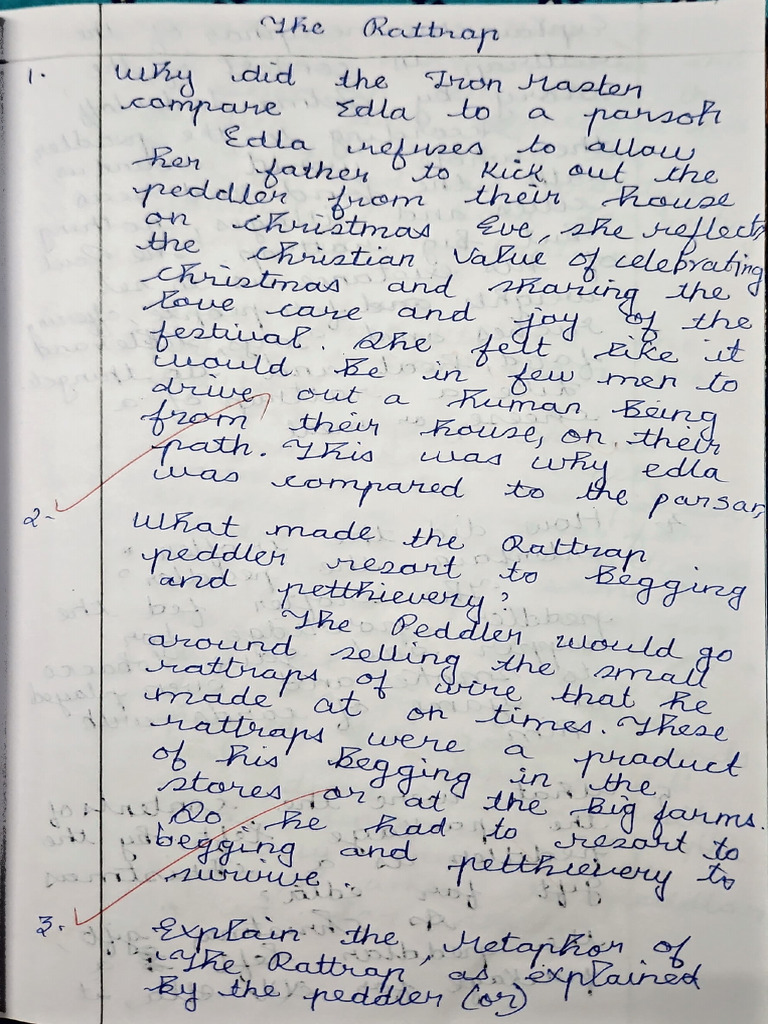 The Rattrap
1. Why did the Iron Master
compare Edla to a parson
Edla refuses to allow
her father to kick out the
peddler from their house
on christmas Eve, she reflects
the christian value of celebrating
christmas and sharing the
love care and joy of the
festival. She felt like it
would be in few men to
drive out a human Being
from their house, on their
path. This was why edla
was compared to the parsan,
2. What made the Rattrap
peddler resort to Begging
and petthievery?
The Peddler would go
around selling the small
rattraps of wire that he
made at on times. These
rattraps were a product
of his Begging in the
stores or at the big farms.
So he had to resort to
begging and petthievery to
survive.
3. Explain the Metaphor of
The Rattrap, as explained
by the peddler (or)